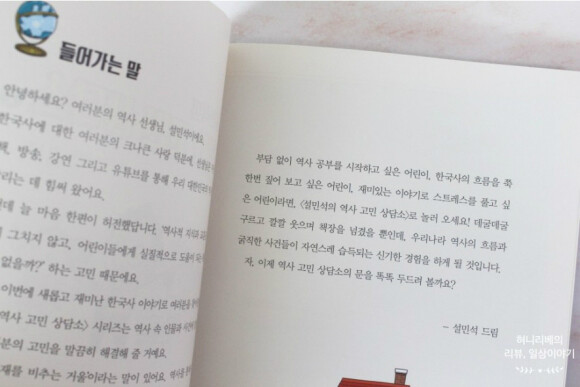 들어가는 말
안녕하세요? 여러분의 역사 선생님, 설민석이에요.
한국사에 대한 여러분의 크나큰 사랑 덕분에,
방송, 강연 그리고 유튜브를 통해 우리 대한민국의
리는 데 힘써 왔어요.
데 늘 마음 한편이 허전했답니다.
그치지 않고, 어린이들에게 실질적으로 도움이
없을까?' 하는 고민 때문에요.
이번에 새롭고 재미난 한국사 이야기로 여러분을
역사 고민 상담소〉 시리즈는 역사 속 인물과
분의 고민을 말끔히 해결해 줄 거예요.
재를 비추는 거울'이라는 말이 있어요. 역사를
부담 없이 역사 공부를 시작하고 싶은 어린이, 한국사의 흐름을 쭉
한번 짚어 보고 싶은 어린이, 재미있는 이야기로 스트레스를 풀고 싶
은 어린이라면, 〈설민석의 역사 고민 상담소〉로 놀러 오세요! 데굴데굴
구르고 깔깔 웃으며 책장을 넘겼을 뿐인데, 우리나라 역사의 흐름과
굵직한 사건들이 자연스레 습득되는 신기한 경험을 하게 될 것입니다.
자, 이제 역사 고민 상담소의 문을 똑똑 두드려 볼까요?
– 설민석 드림
허니리베의
리뷰, 일상이야기